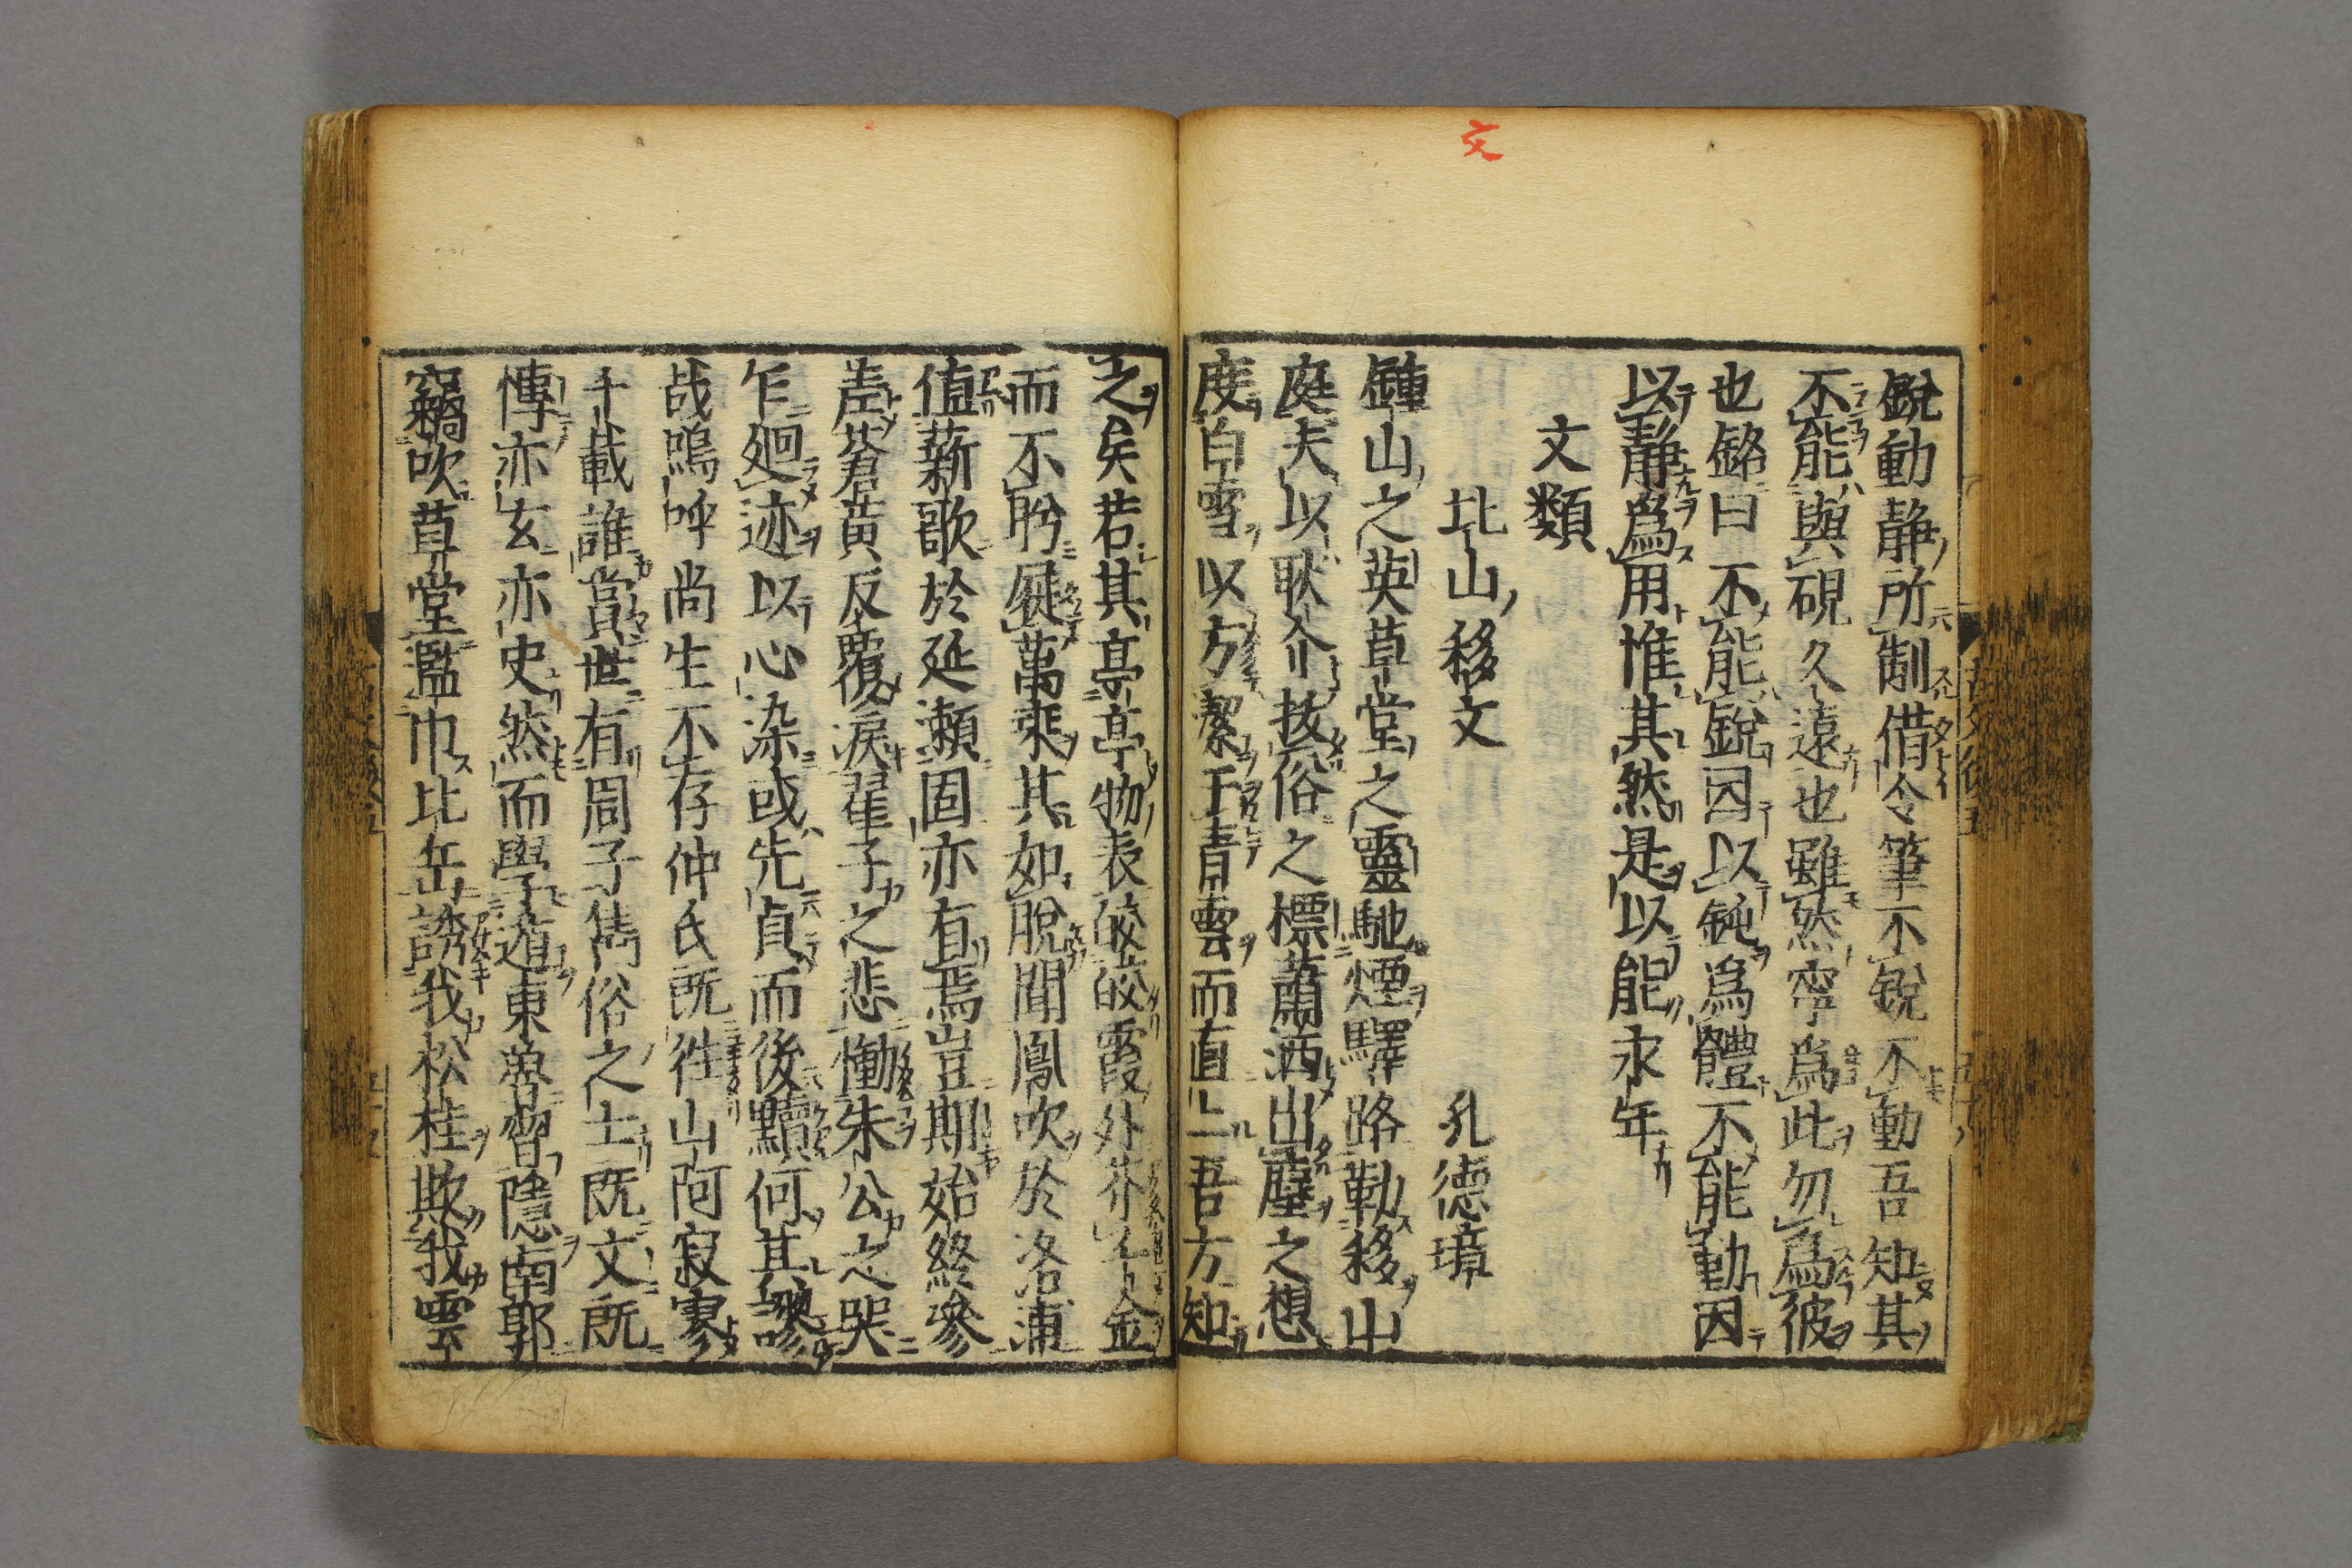 文
銳動静所制借令筆不銳不動吾知其
不能與硯久遠也雖然寧爲此勿爲彼
也銘曰不能銳因以鈍爲體不能動因
以静爲用惟其然是以能永年
文類
北山移文 孔德璋
鍾山之英草堂之靈馳煙驛路勒移山
庭夫以耿介拔俗之標蕭洒出塵之想
度白雪以方潔干青雲而直上吾方知
之矣若其亭亭物表皎皎霞外芥千金
而不盻屣萬乘其如脫聞鳳吹於洛浦
値薪歌於延瀬固亦有焉豈期始終參
差蒼黄反覆淚翟子之悲慟朱公之哭
乍廻迹以心染或先貞而後黷何其謬
哉嗚呼尚生不存仲氏既徃山阿寂寥
千載誰賞世有周子雋俗之士既文既
愽亦玄亦史然而學遁東魯習隱南郭
竊吹草堂濫巾北岳誘我松桂欺我雲